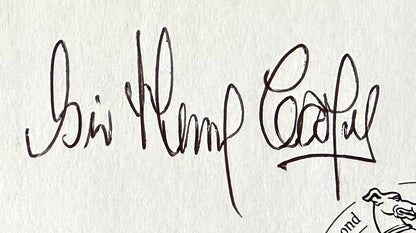 Sir Henry Cooper
ond